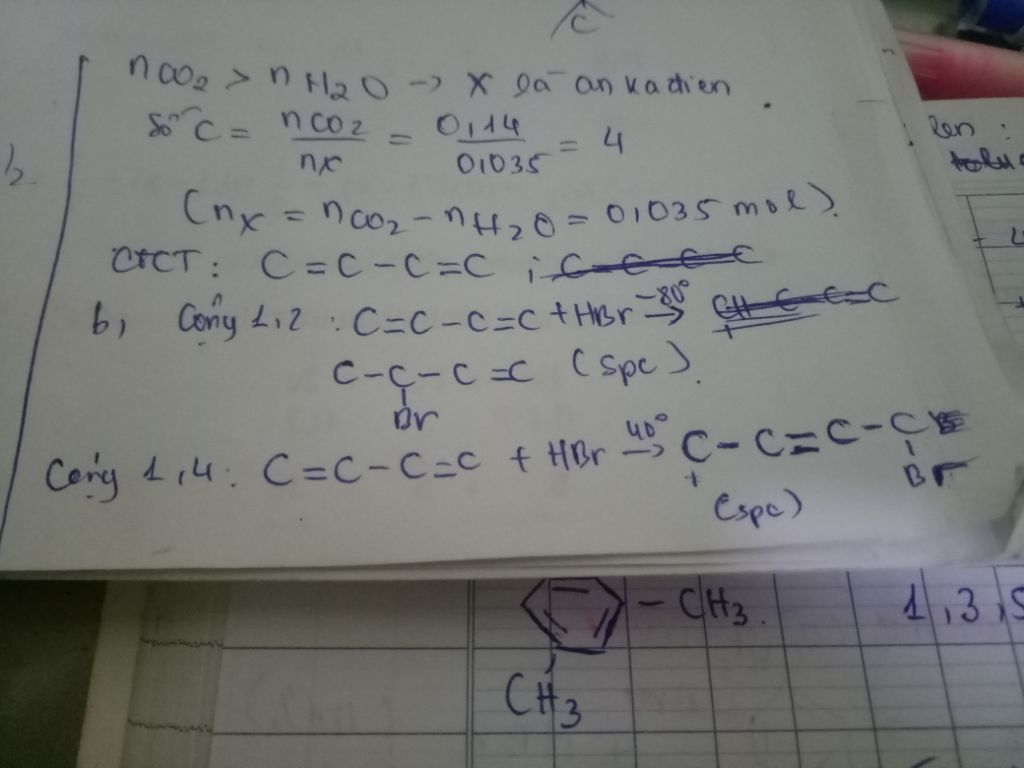 C
nCO2 > nH2O → X là ankadien
Số C = nCO2 / nX = 0,14 / 0,035 = 4
(nX = nCO2 - nH2O = 0,035 mol).
CTCT: C=C-C=C ;
b, Cộng 1,2 : C=C-C=C + HBr -80° →
C-C-C=C (spc).
Br
Cộng 1,4: C=C-C=C + HBr 40° → C-C=C-C
Br
(spc)
- CH3. 1,3,5
CH3